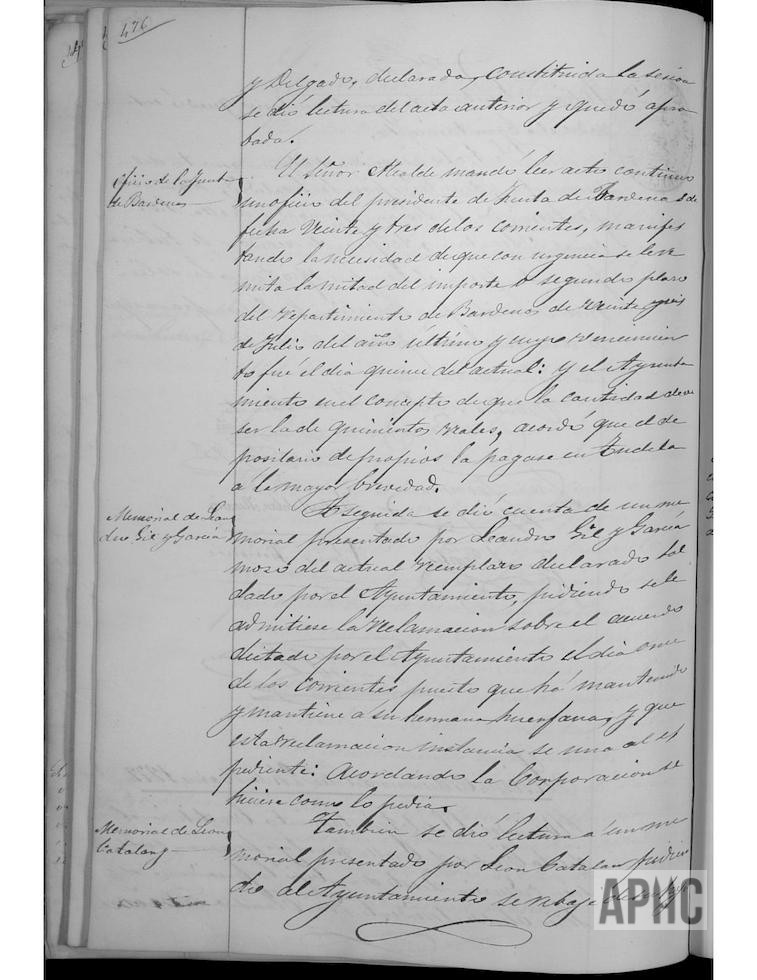 476
y Delgado, declarada, constituida la sesion
se dió lectura del acta anterior y quedó apro
bada.
Oficio de la Junta
de Bardenas
El Señor Alcalde mandó leer acto continuo
un oficio del presidente de Junta de Bardenas de
fecha Veinte y tres de los corrientes, manifes
tando la necesidad de que con urgencia se le re
mita la mitad del importe o segundo plazo
del repartimiento de Bardenas de veinte y seis
de Julio del año último y cuyo vencimien
to fué el dia quince del actual: y el Ayunta
miento en el concepto de que la cantidad deve
ser la de quinientos reales, acordó que el de
positario de propios la pagase en Tudela
a la mayor brevedad.
Memorial de Lean
dro Gil y Garcia
A seguida se dió cuenta de un me
morial presentado por Leandro Gil y Garcia
mozo del actual reemplazo declarado sol
dado por el Ayuntamiento, pidiendo se le
admitiese la reclamacion sobre el acuerdo
dictado por el Ayuntamiento el dia once
de los corrientes puesto que há mantenido
y mantiene á su hermana huerfana, y que
esta reclamacion instancia se una al es
pediente: Acordando la Corporacion se
hiciese como lo pedia.
Memorial de Leon
Catalan
También se dió lectura á un me
morial presentado por Leon Catalan pidien
do al Ayuntamiento se rebaje
APMC